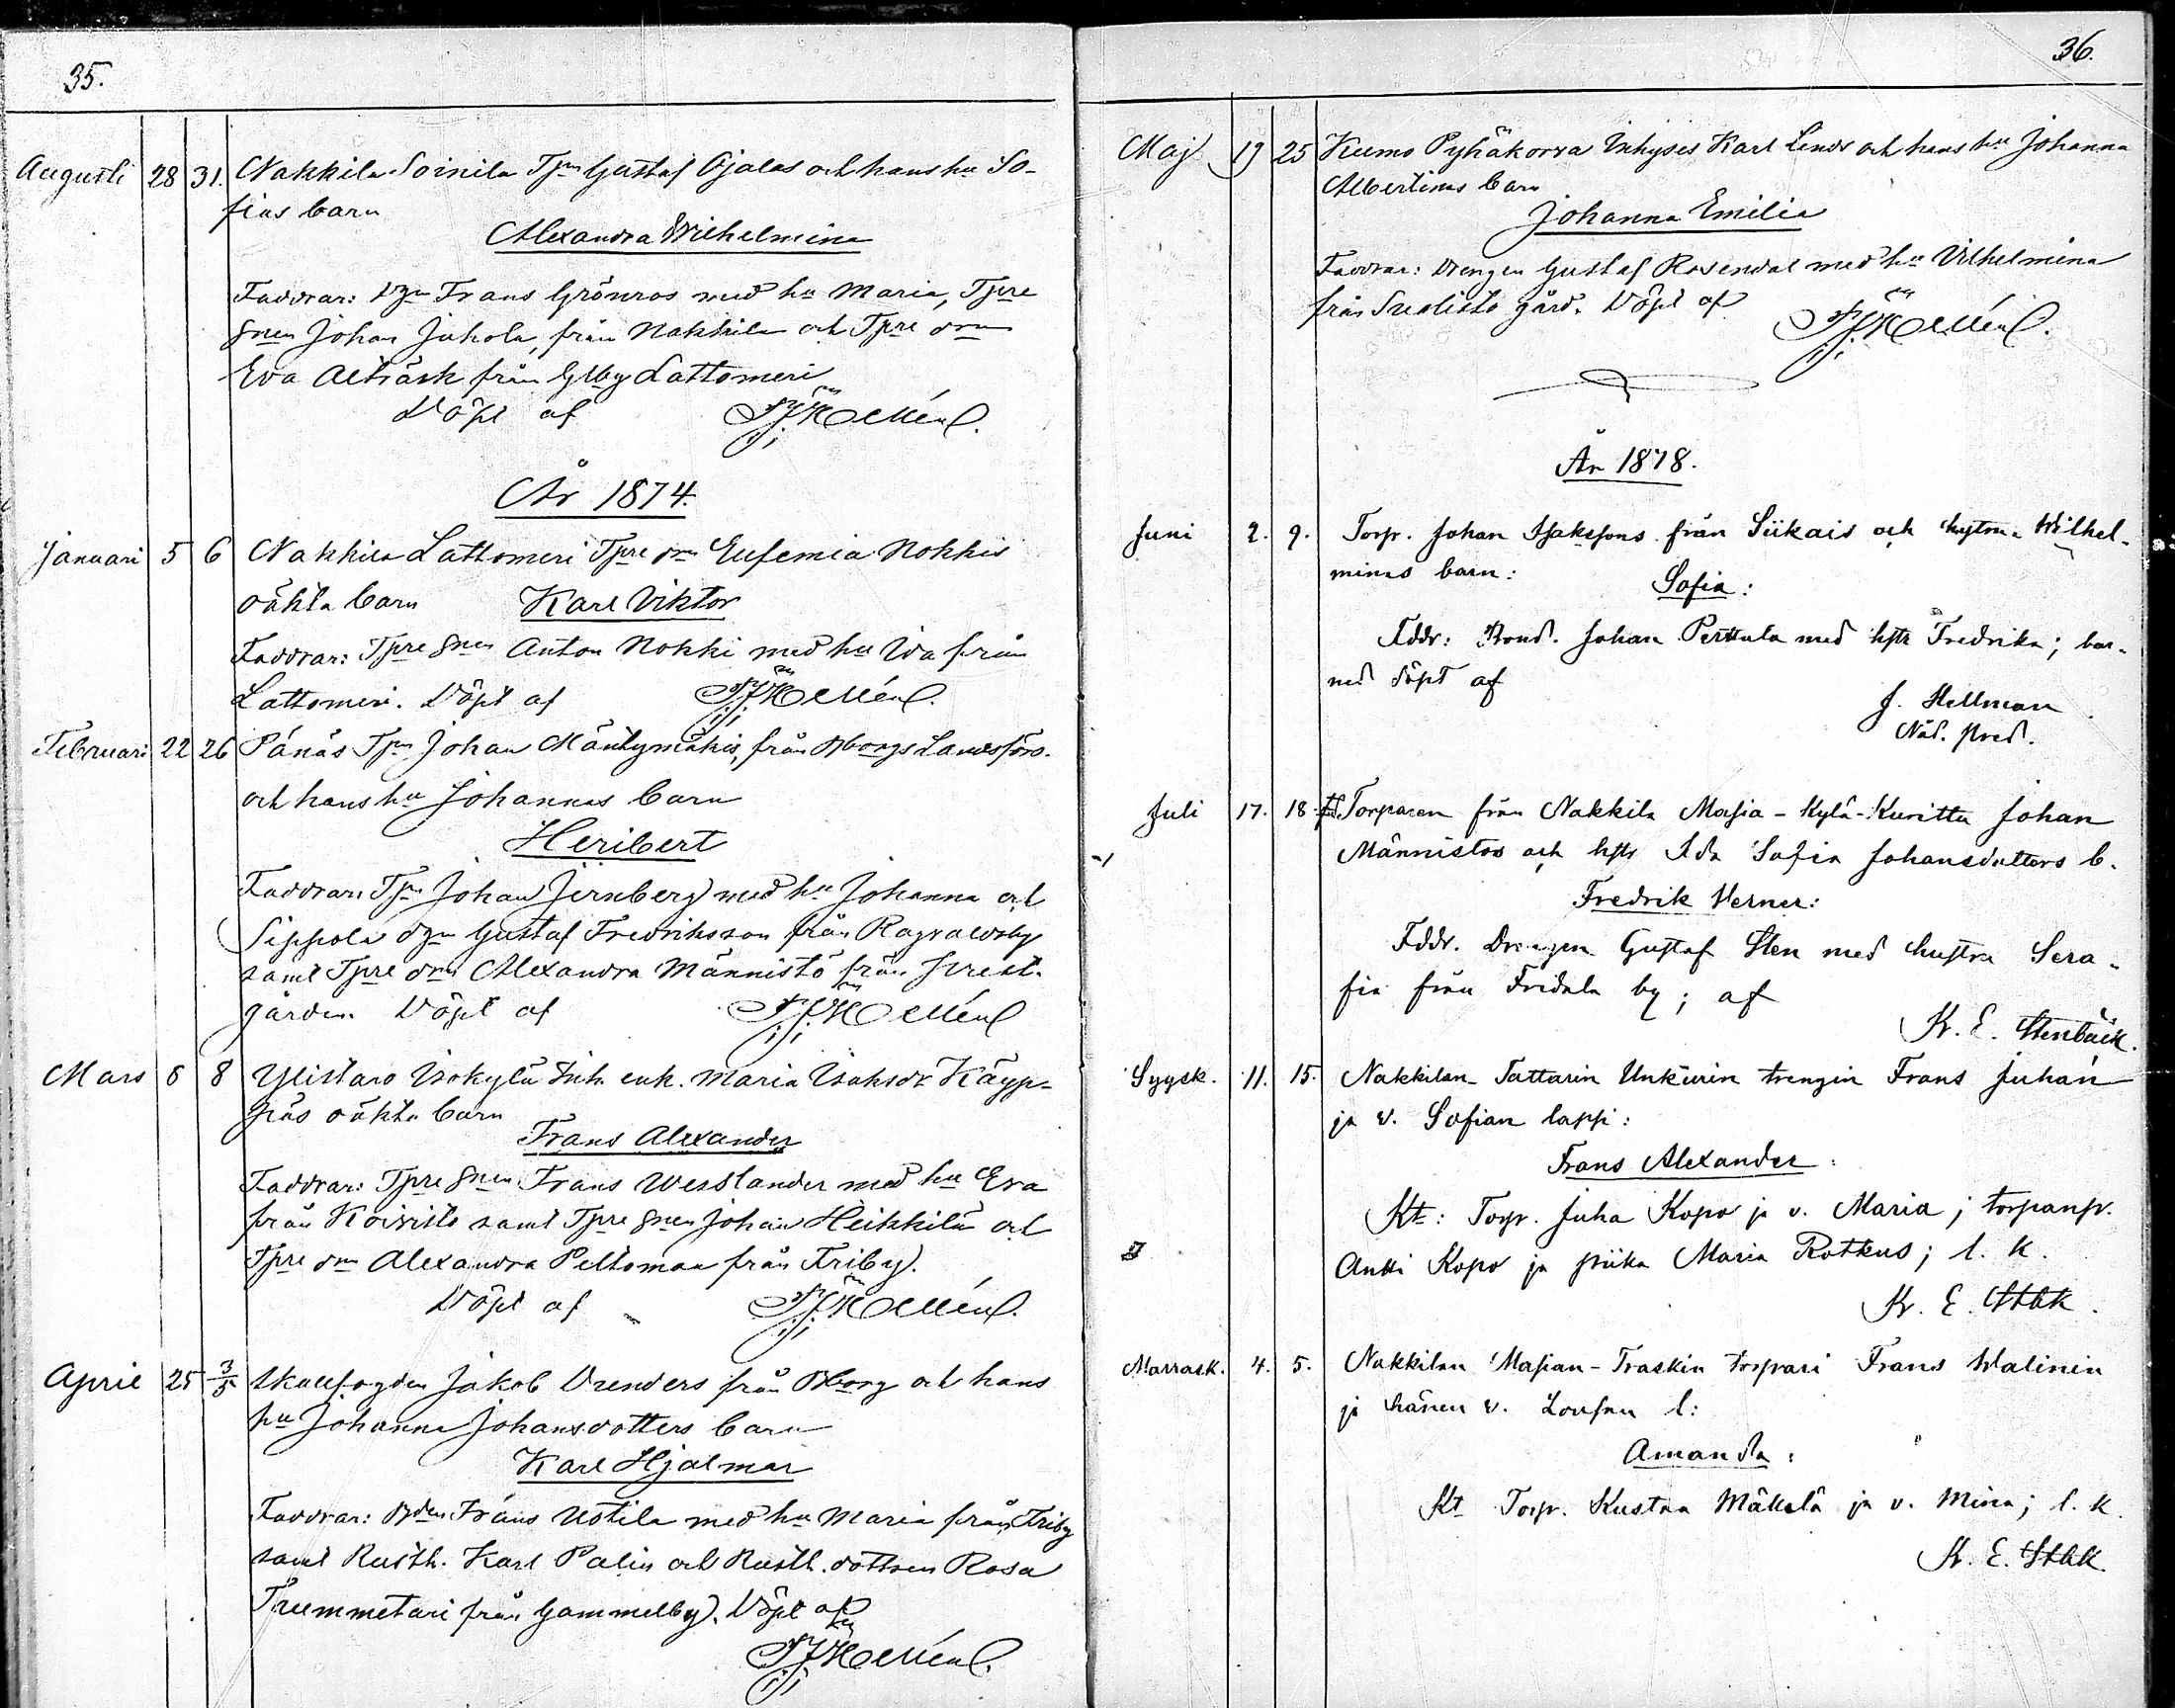 35.
Augusti 28 31. Nakkila Soinila Tpn Gustaf Ojalas och hans hu So-
fias barn
Alexandra Wilhelmina
Faddrar: Dgn Frans Grönroos med hu Maria, Tpre
snen Johan Juhola, från Nakkila och Tpre drn
Eva Aeträsk från Glby Lattomeri
Döpt af
År 1874.
Januari 5 6 Nakkila Lattomeri Tpre drn Eufemia Nokkis
oäkta barn Karl Viktor
Faddrar: Tpre snen Anton Nokki med hu Ida från
Lattomeri. Döpt af
Februari 22 26 Pånäs Tpn Johan Mäntymäkis, från Bborgs Landsförs.
och hans hu Johannas barn
Heribert
Faddrar: Tpn Johan Jernberg med hu Johanna och
Sippola dgn Gustaf Fredriksson från Ragvaldsby
samt Tpre drn Alexandra Männistö från
gården Döpt af
Mars 6 8 Ylistaro Isokylä Inh. enk. Maria Isaksdr Käyp-
päs oäkta barn
Frans Alexander
Faddrar: Tpre snen Frans Wesslander med hu Eva
från Koivisto samt Tpre snen Johan Heikkilä och
Tpre drn Alexandra Peltomaa från Friby.
Döpt af
April 25 3/5 Skallfogden Jakob Drenders från Bborg och hans
hu Johanna Johansdotters barn
Karl Hjalmar
Faddrar: Bden Frans Uotila med hu Maria från Friby
samt Rusth. Karl Palin och Rusth. dottren Rosa
Trummetari från Gammelby. Döpt af
36.
Maj 19 25 Kumo Pyhäkorva Inhyses Karl Linds och hans hu Johanna
Albertinas barn
Johanna Emilia
Faddrar: Drengen Gustaf Rosendal med hu Vilhelmina
från Suolisto gård. Döpt af
År 1878.
Juni 2. 9. Torp. Johan Isakssons från Siikais och hustru Wilhel-
minas barn:
Sofia:
Fddr: Bond. Johan Perttula med hstr Fredrika; bar-
net döpt af
J. Hellman
Nåd. pred.
Juli 17. 18 Torparen från Nakkila Masia-Kylä-Kuritta Johan
Männistös och hstr Ida Sofia Johansdotters b.
Fredrik Verner:
Fddr. Drengen Gustaf Sten med hustru Sera-
fia från Fridala by; af
K. E. Stenbäck.
Syysk. 11. 15. Nakkilan Tattarin Unkurin trengin Frans Juhan
ja v. Sofian lapsi:
Frans Alexander:
Kt: Torp. Juha Kopo ja v. Maria; torpanp.
Antti Kopo ja piika Maria Rotkus; l. k.
K. E. Stbk.
Marrask. 4. 5. Nakkilan Masian-Traskin torpari Frans Walinin
ja hänen v. Lovisan l:
Amanda:
Kt Torp. Kustaa Mäkelä ja v. Mina; l. k.
K. E. Stbk.